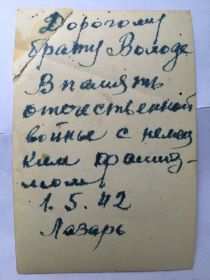 Дорогому
брату Володе
В память
отечественной
войны с немец
ким фашиз-
мом
1.5.42
Лазарь